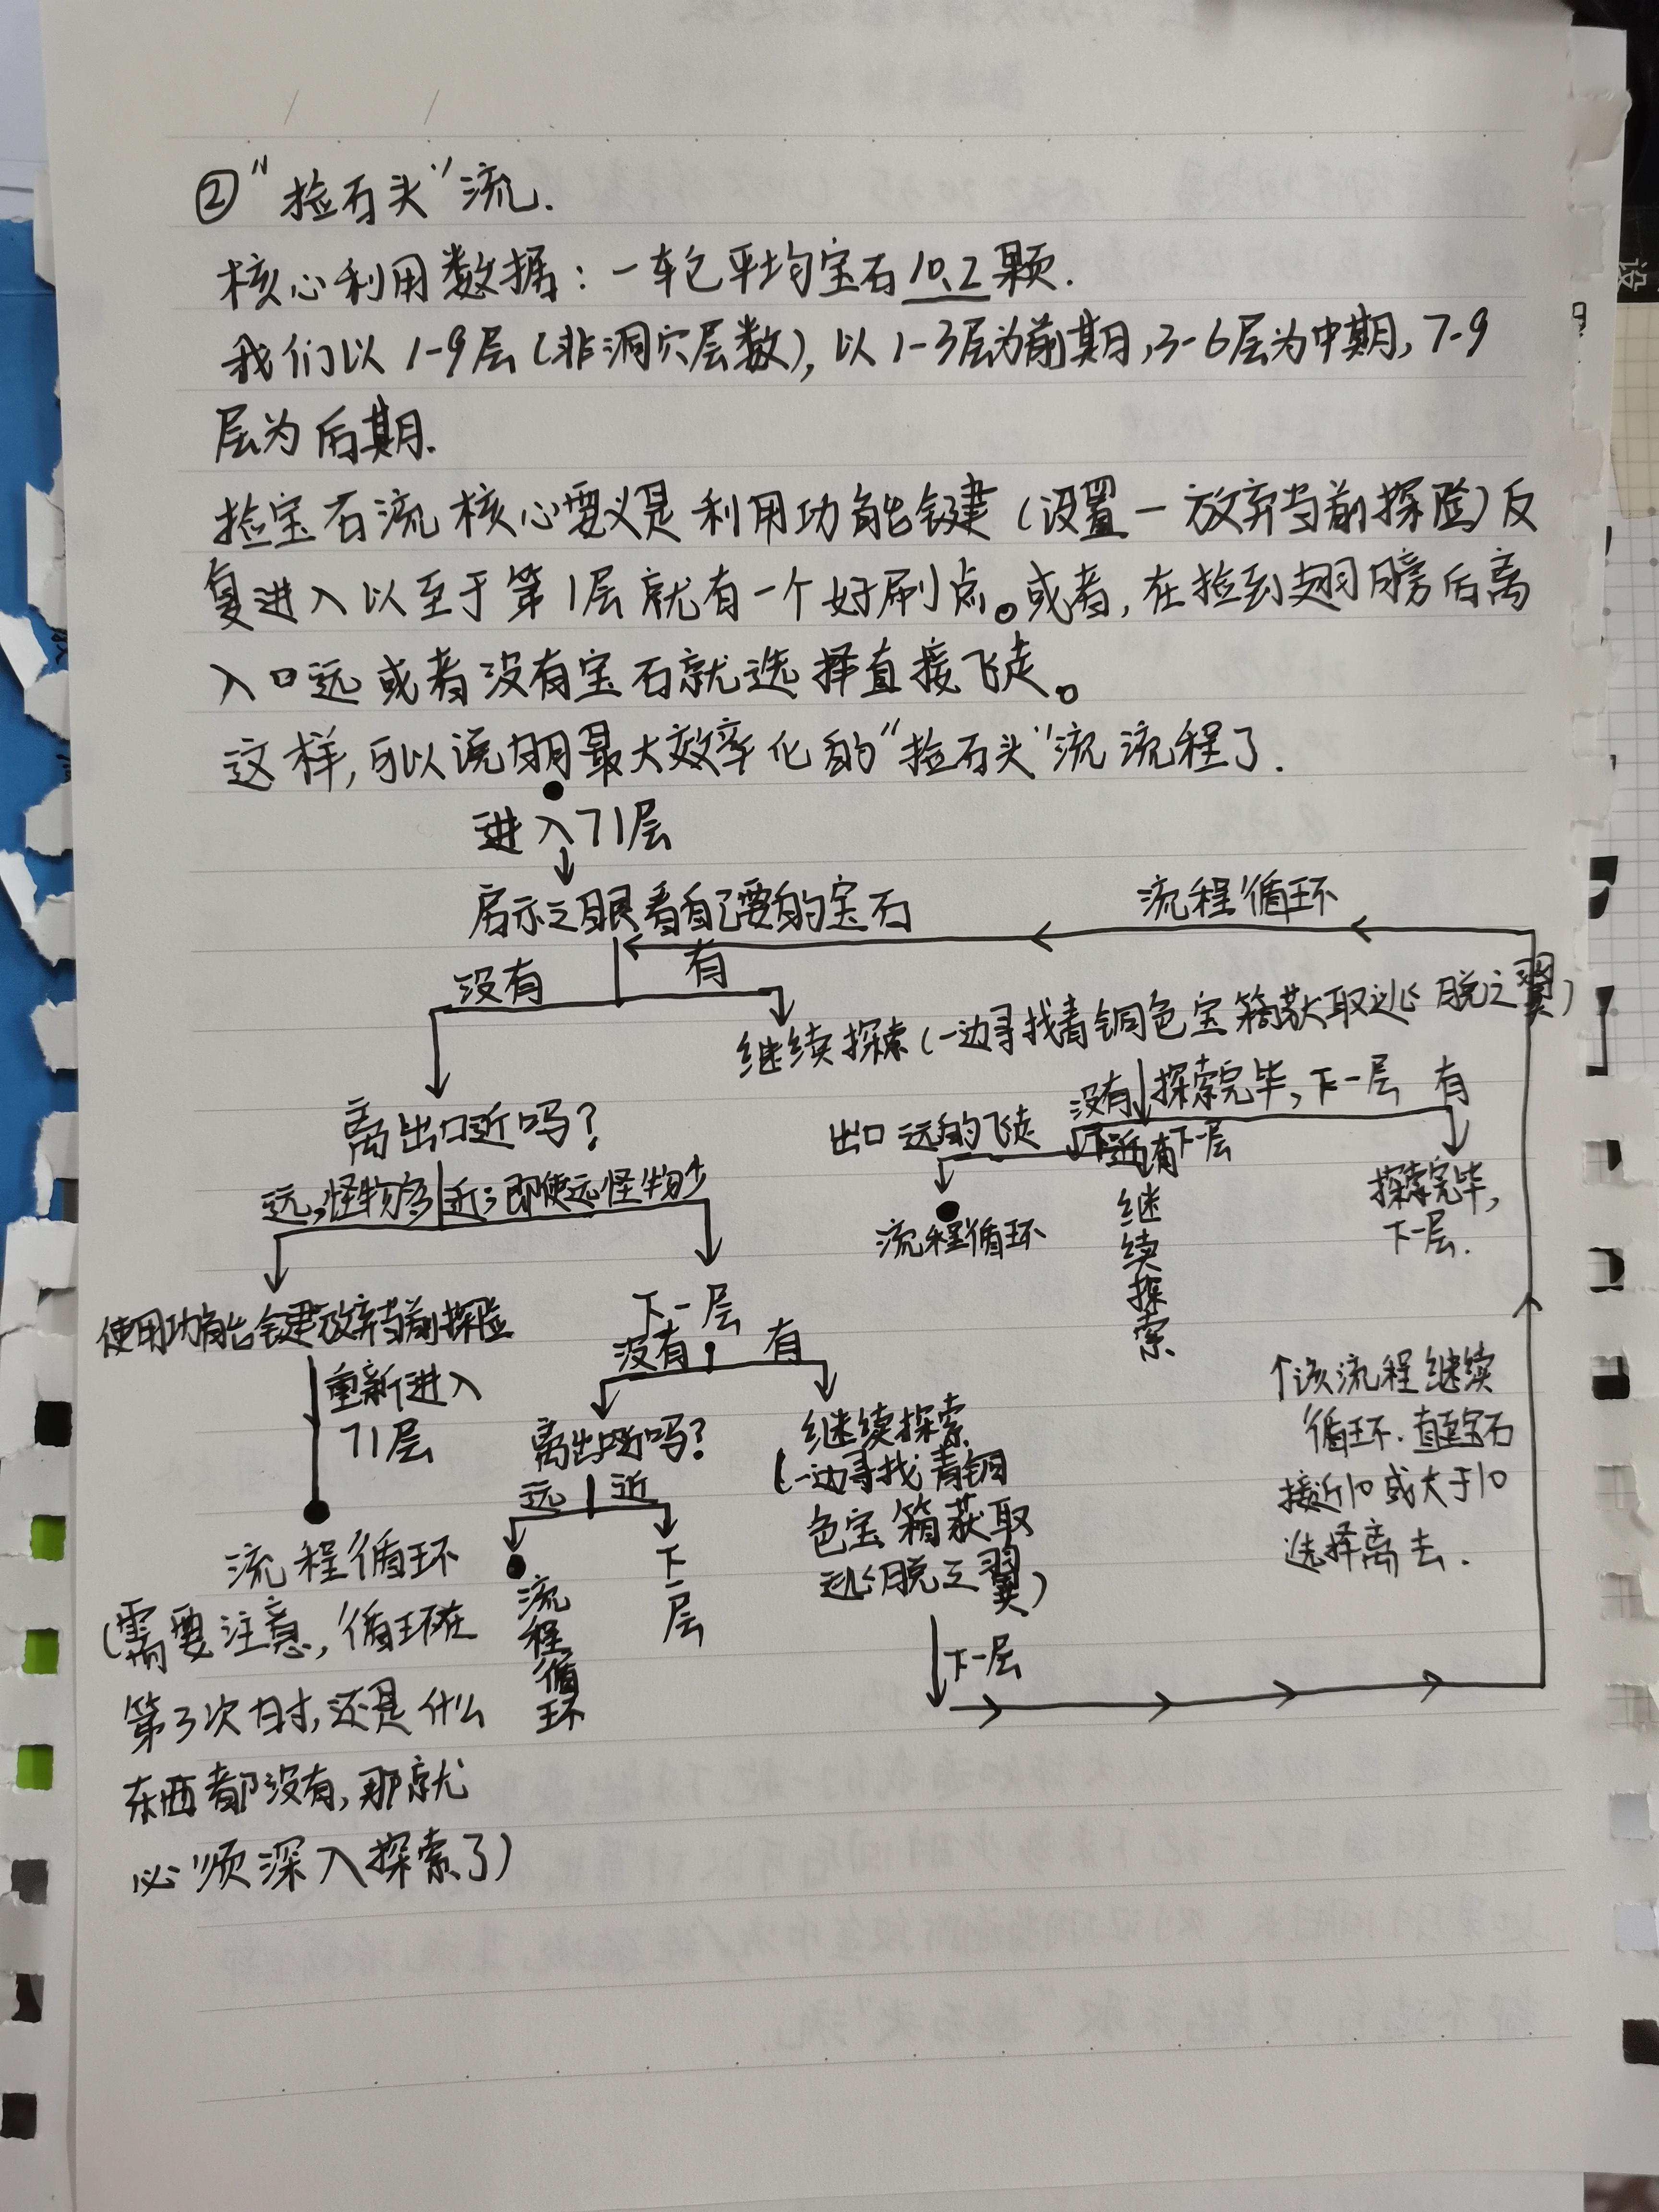 ②“捡石头”流.
核心利用数据：一车包平均宝石10.2颗.
我们以1-9层（非洞穴层数），以1-3层为前期，3-6层为中期，7-9
层为后期.
捡宝石流核心要义是利用功能键（设置一放弃当前探险）反
复进入以至于第1层就有一个好刷点。或者，在捡到翅膀后离
入口远或者没有宝石就选择直接飞走。
这样，可以说明最大效率化的“捡石头”流流程了.
进入71层
启示之眼看自己需要的宝石
流程循环
没有
有
继续探索（一边寻找青铜色宝箱获取逃脱之翼）
没有
探索完毕，下一层
有
离出口近吗？
出口远的飞走
下一层
远，怪物多
近；即使远怪物少
流程循环
继续探索
探索完毕，
下一层.
使用功能键放弃当前探险
重新进入
71层
下一层
没有
有
离出口近吗？
远
近
继续探索
（一边寻找青铜
色宝箱获取
逃脱之翼）
↑该流程继续
循环.直至宝石
接近10或大于10
选择离去.
流程循环
下一层
下一层
流程循环
（需要注意，循环在
第3次时，还是什么
东西都没有，那就
必须深入探索了）